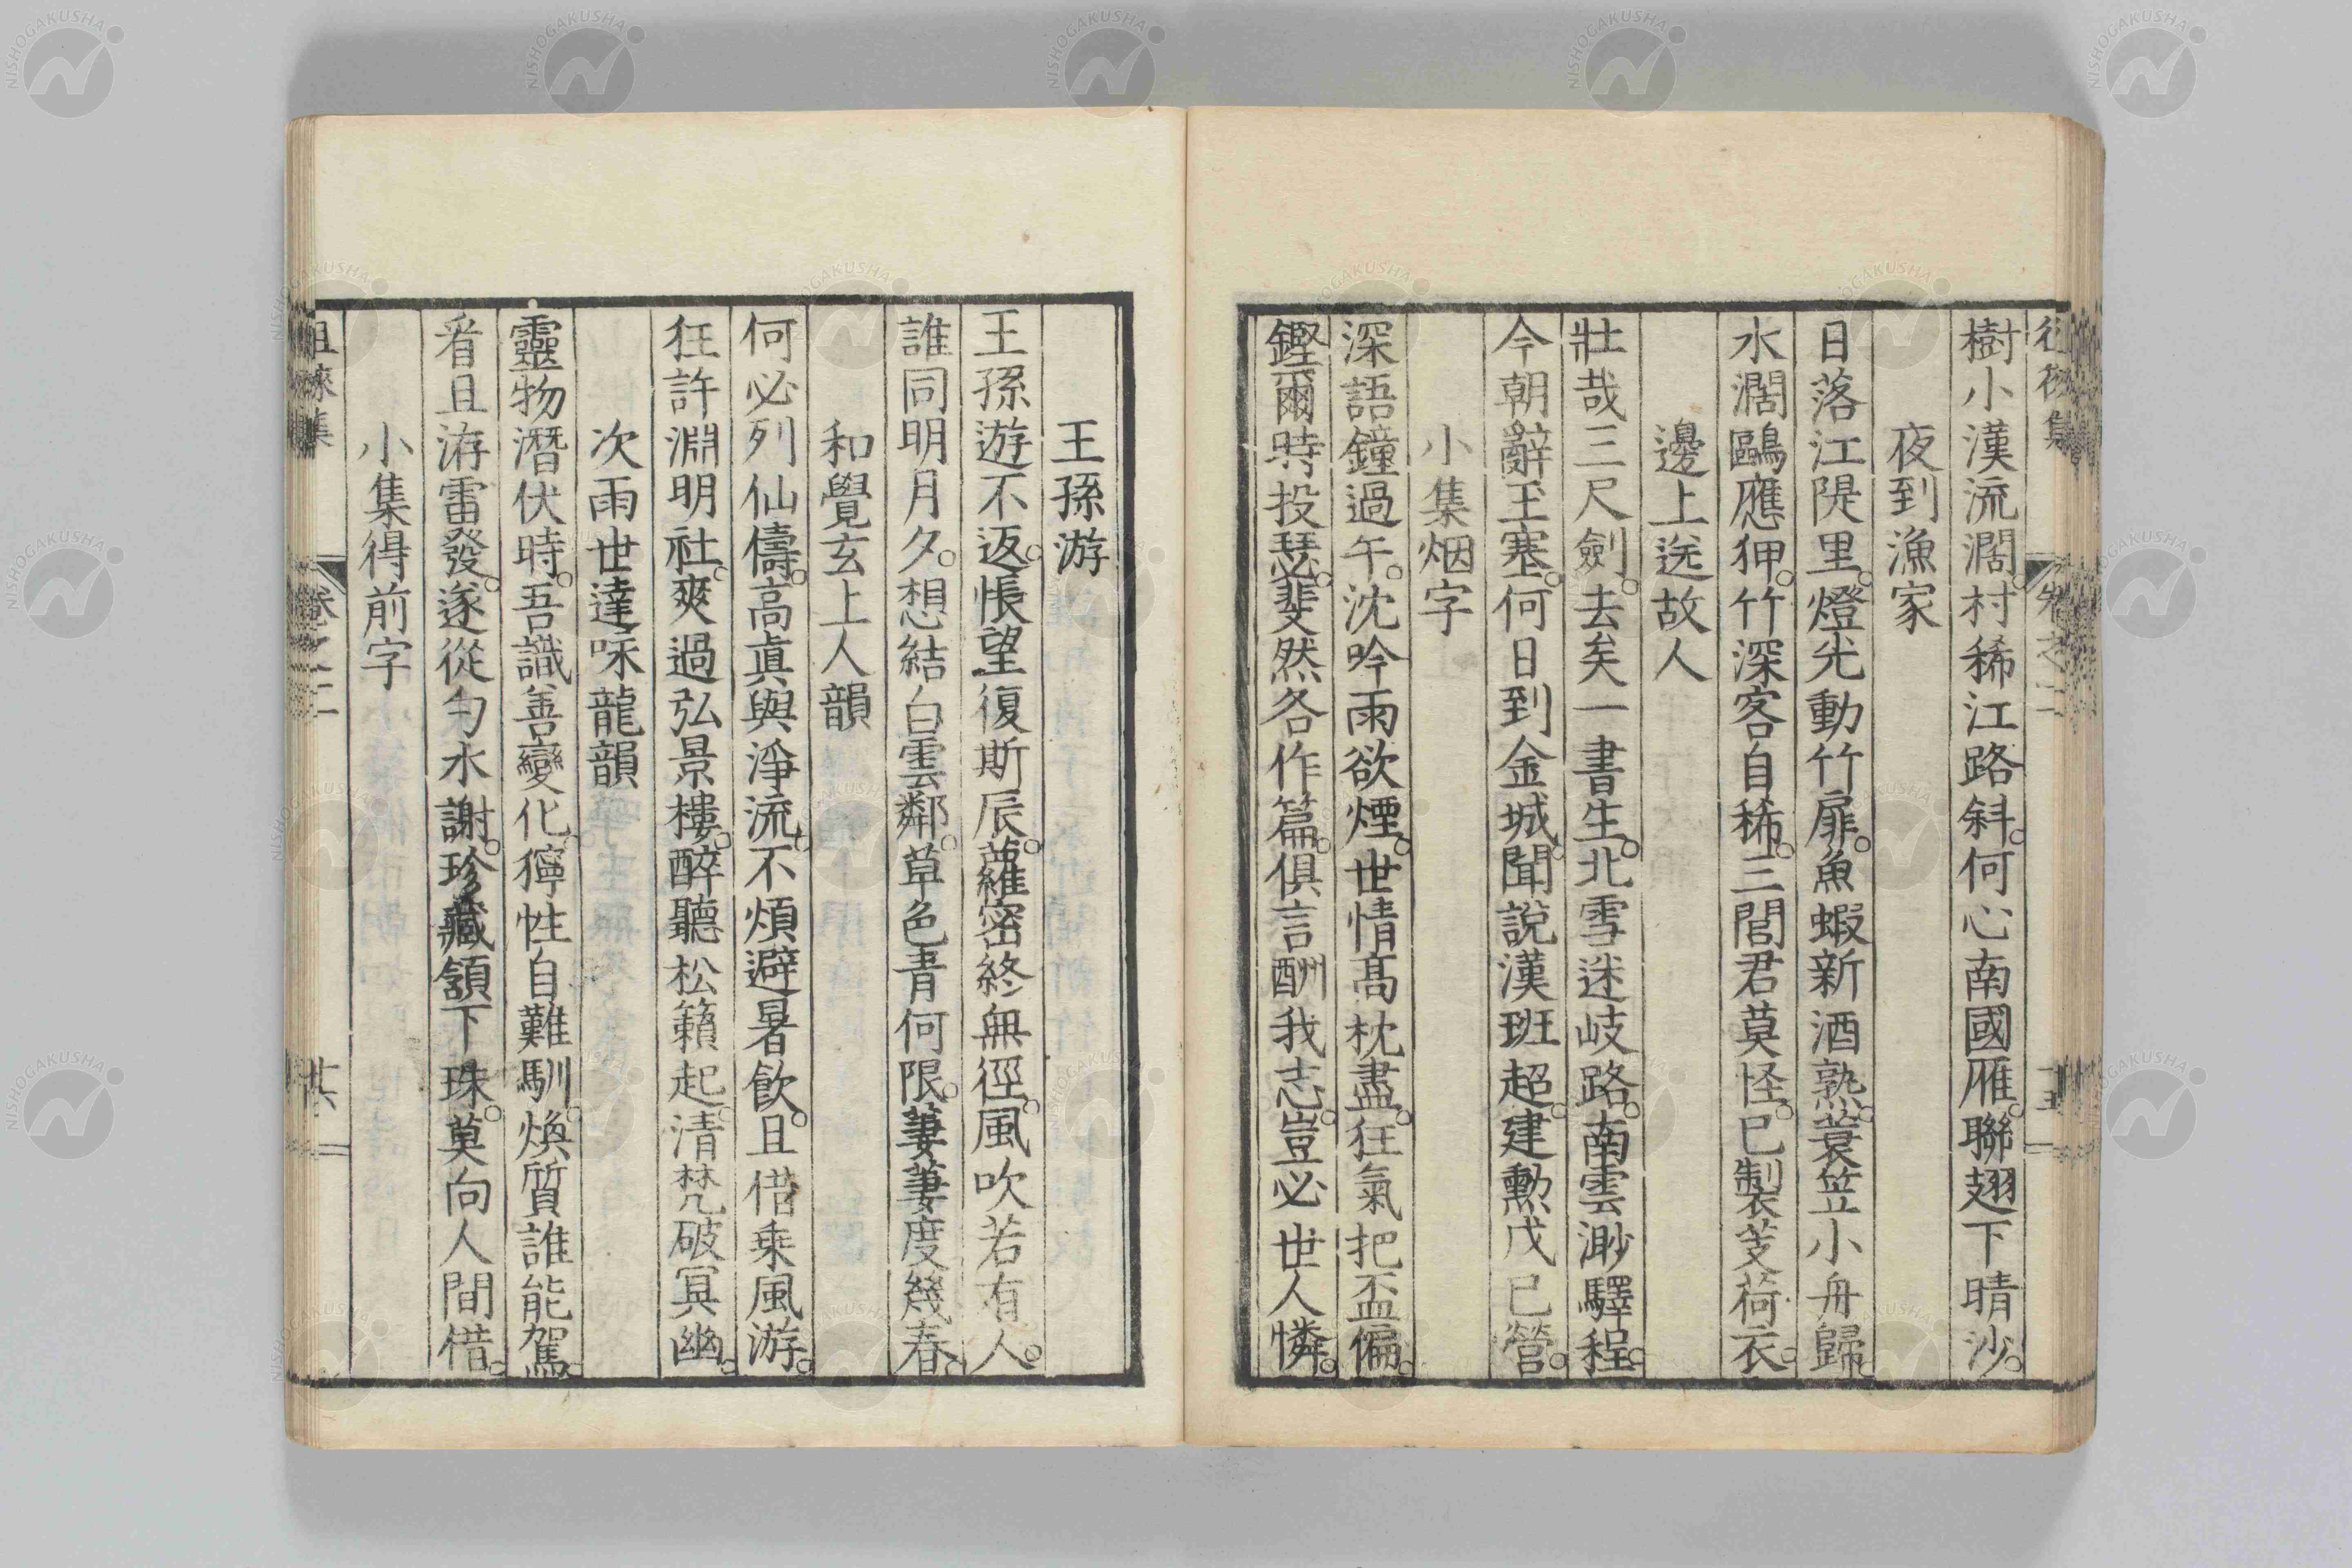 徂徠集 卷之二
樹小漢流濶。村稀江路斜。何心南國雁。聯翅下晴沙。
夜到漁家
日落江隄里。燈光動竹扉。魚蝦新酒熟。蓑笠小舟歸。
水濶鷗應狎。竹深客自稀。三閭君莫怪。已製芰荷衣。
邊上送故人
壯哉三尺劍。去矣一書生。北雪迷岐路。南雲渺驛程。
今朝辭玉塞。何日到金城。聞說漢班超。建勲戊已營。
小集烟字
深語鐘過午。沈吟雨欲煙。世情高枕盡。狂氣把盃偏。
鏗爾時投瑟。斐然各作篇。俱言酬我志。豈必世人憐。
王孫游
王孫遊不返。悵望復斯辰。蘿密終無徑。風吹若有人。
誰同明月夕。想結白雲鄰。草色青何限。萋萋度幾春。
和覺玄上人韻
何必列仙儔。高眞與淨流。不煩避暑飲。且借乗風游。
狂許淵明社。爽過弘景樓。醉聽松籟起。清梵破冥幽。
次雨世達咏龍韻
靈物潛伏時。吾識善變化。獰性自難馴。煥質誰能駕。
看且洊雷發。遂從勺水謝。珍藏頷下珠。莫向人間借。
小集得前字
徂徠集 卷之二 廿六
NISHOGAKUSHA